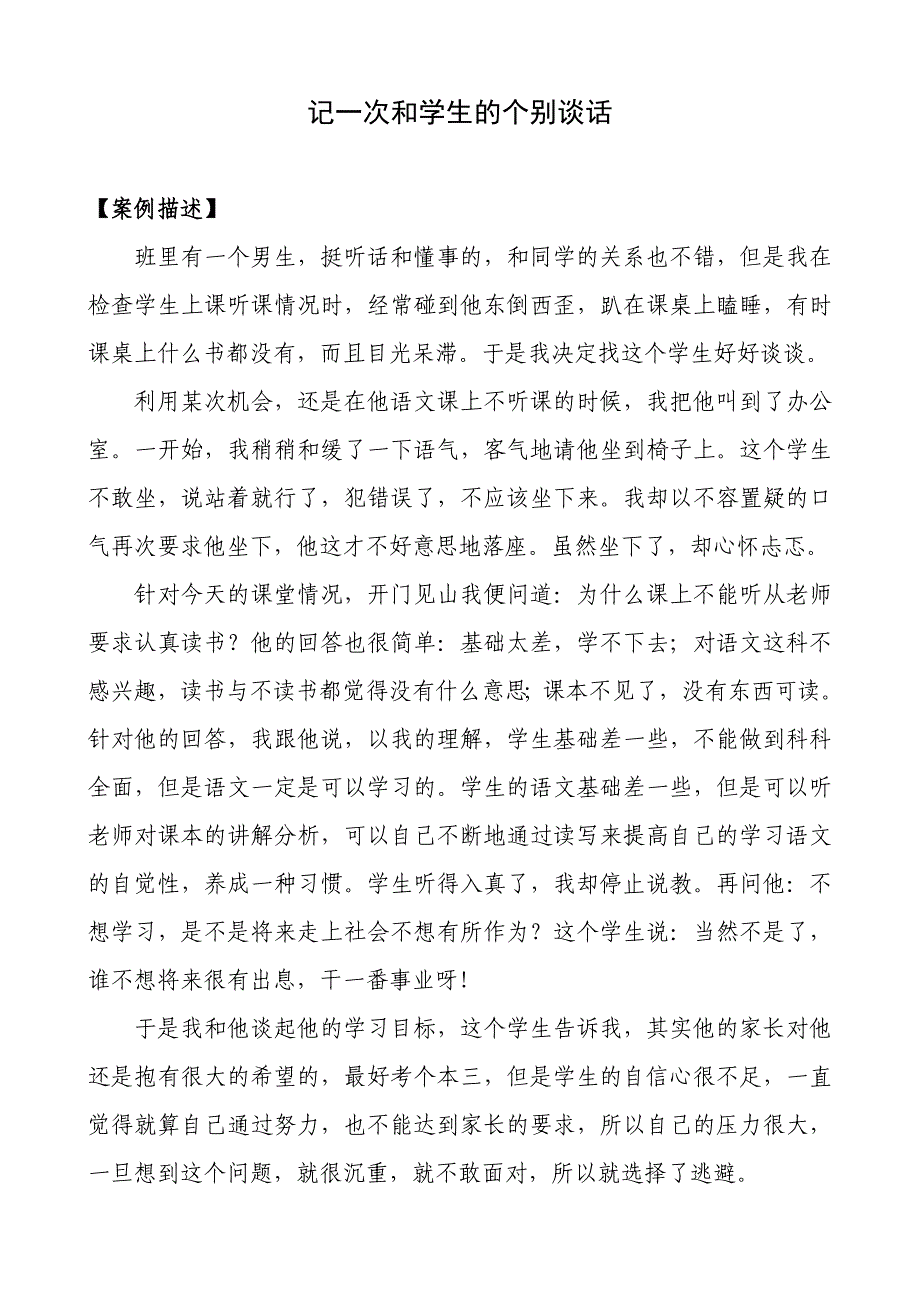 记一次和学生的个别谈话
【案例描述】
班里有一个男生，挺听话和懂事的，和同学的关系也不错，但是我在
检查学生上课听课情况时，经常碰到他东倒西歪，趴在课桌上瞌睡，有时
课桌上什么书都没有，而且目光呆滞。于是我决定找这个学生好好谈谈。
利用某次机会，还是在他语文课上不听课的时候，我把他叫到了办公
室。一开始，我稍稍和缓了一下语气，客气地请他坐到椅子上。这个学生
不敢坐，说站着就行了，犯错误了，不应该坐下来。我却以不容置疑的口
气再次要求他坐下，他这才不好意思地落座。虽然坐下了，却心怀忐忑。
针对今天的课堂情况，开门见山我便问道：为什么课上不能听从老师
要求认真读书？他的回答也很简单：基础太差，学不下去；对语文这科不
感兴趣，读书与不读书都觉得没有什么意思；课本不见了，没有东西可读。
针对他的回答，我跟他说，以我的理解，学生基础差一些，不能做到科科
全面，但是语文一定是可以学习的。学生的语文基础差一些，但是可以听
老师对课本的讲解分析，可以自己不断地通过读写来提高自己的学习语文
的自觉性，养成一种习惯。学生听得入真了，我却停止说教。再问他：不
想学习，是不是将来走上社会不想有所作为？这个学生说：当然不是了，
谁不想将来很有出息，干一番事业呀！
于是我和他谈起他的学习目标，这个学生告诉我，其实他的家长对他
还是抱有很大的希望的，最好考个本三，但是学生的自信心很不足，一直
觉得就算自己通过努力，也不能达到家长的要求，所以自己的压力很大，
一旦想到这个问题，就很沉重，就不敢面对，所以就选择了逃避。